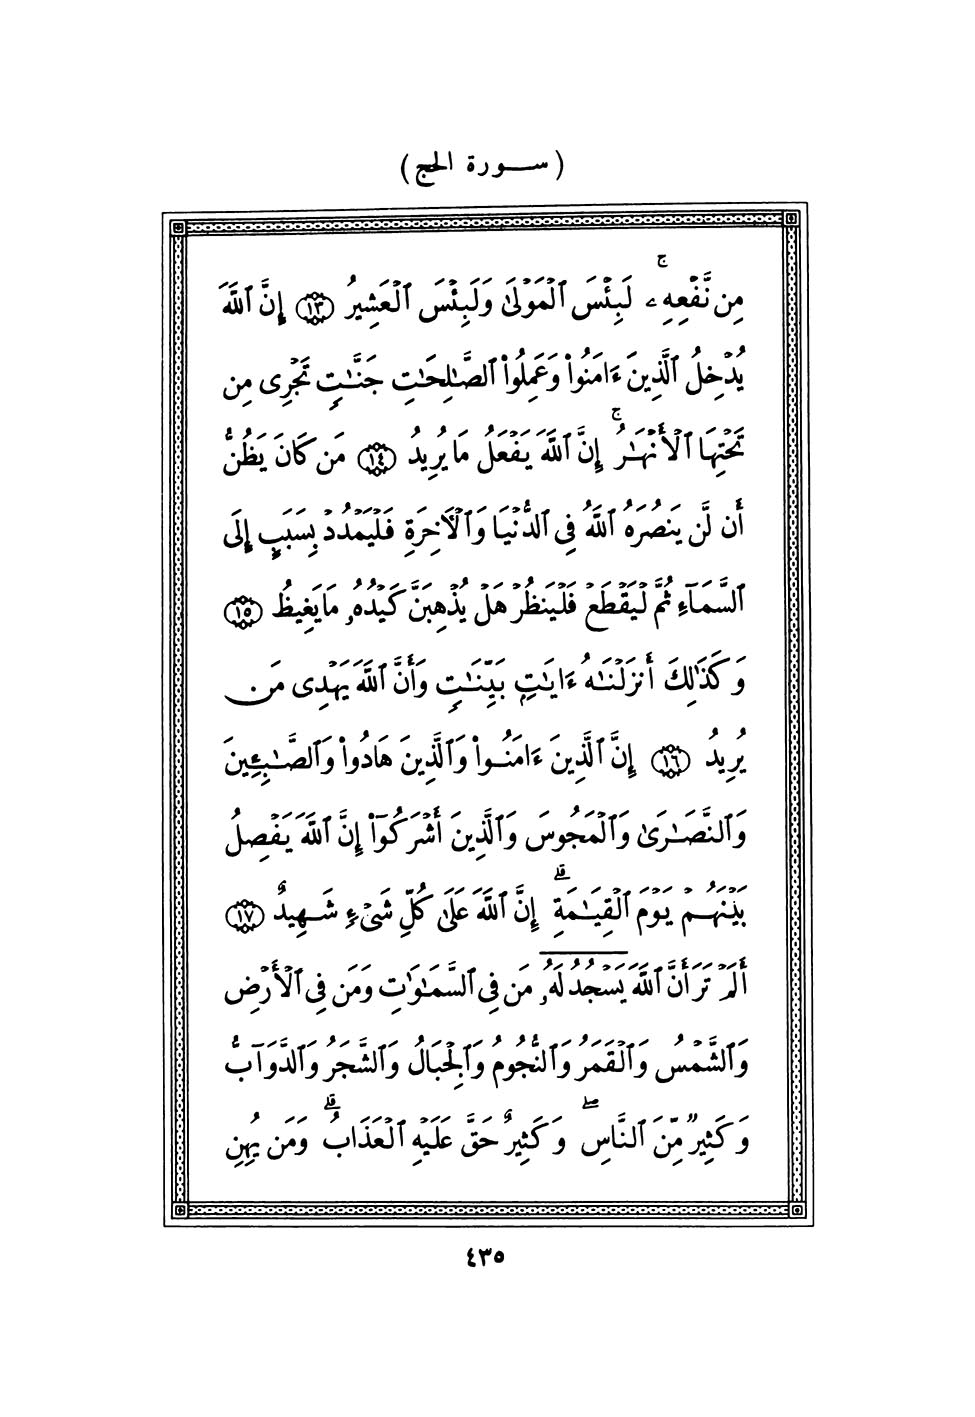 ( ســورة الحج )
مِن نَّفْعِهِۦۚ لَبِئْسَ ٱلْمَوْلَىٰ وَلَبِئْسَ ٱلْعَشِيرُ ۝١٣ إِنَّ ٱللَّهَ
يُدْخِلُ ٱلَّذِينَ ءَامَنُوا۟ وَعَمِلُوا۟ ٱلصَّـٰلِحَـٰتِ جَنَّـٰتٍ تَجْرِى مِن
تَحْتِهَا ٱلْأَنْهَـٰرُۚ إِنَّ ٱللَّهَ يَفْعَلُ مَا يُرِيدُ ۝١٤ مَن كَانَ يَظُنُّ
أَن لَّن يَنصُرَهُ ٱللَّهُ فِى ٱلدُّنْيَا وَٱلْـَٔاخِرَةِ فَلْيَمْدُدْ بِسَبَبٍ إِلَى
ٱلسَّمَآءِ ثُمَّ لْيَقْطَعْ فَلْيَنظُرْ هَلْ يُذْهِبَنَّ كَيْدُهُۥ مَا يَغِيظُ ۝١٥
وَكَذَٰلِكَ أَنزَلْنَـٰهُ ءَايَـٰتٍۭ بَيِّنَـٰتٍ وَأَنَّ ٱللَّهَ يَهْدِى مَن
يُرِيدُ ۝١٦ إِنَّ ٱلَّذِينَ ءَامَنُوا۟ وَٱلَّذِينَ هَادُوا۟ وَٱلصَّـٰبِـِٔينَ
وَٱلنَّصَـٰرَىٰ وَٱلْمَجُوسَ وَٱلَّذِينَ أَشْرَكُوٓا۟ إِنَّ ٱللَّهَ يَفْصِلُ
بَيْنَهُمْ يَوْمَ ٱلْقِيَـٰمَةِۗ إِنَّ ٱللَّهَ عَلَىٰ كُلِّ شَىْءٍ شَهِيدٌ ۝١٧
أَلَمْ تَرَ أَنَّ ٱللَّهَ يَسْجُدُ لَهُۥ مَن فِى ٱلسَّمَـٰوَٰتِ وَمَن فِى ٱلْأَرْضِ
وَٱلشَّمْسُ وَٱلْقَمَرُ وَٱلنُّجُومُ وَٱلْجِبَالُ وَٱلشَّجَرُ وَٱلدَّوَآبُّ
وَكَثِيرٌ مِّنَ ٱلنَّاسِۖ وَكَثِيرٌ حَقَّ عَلَيْهِ ٱلْعَذَابُۗ وَمَن يُهِنِ
٤٣٥